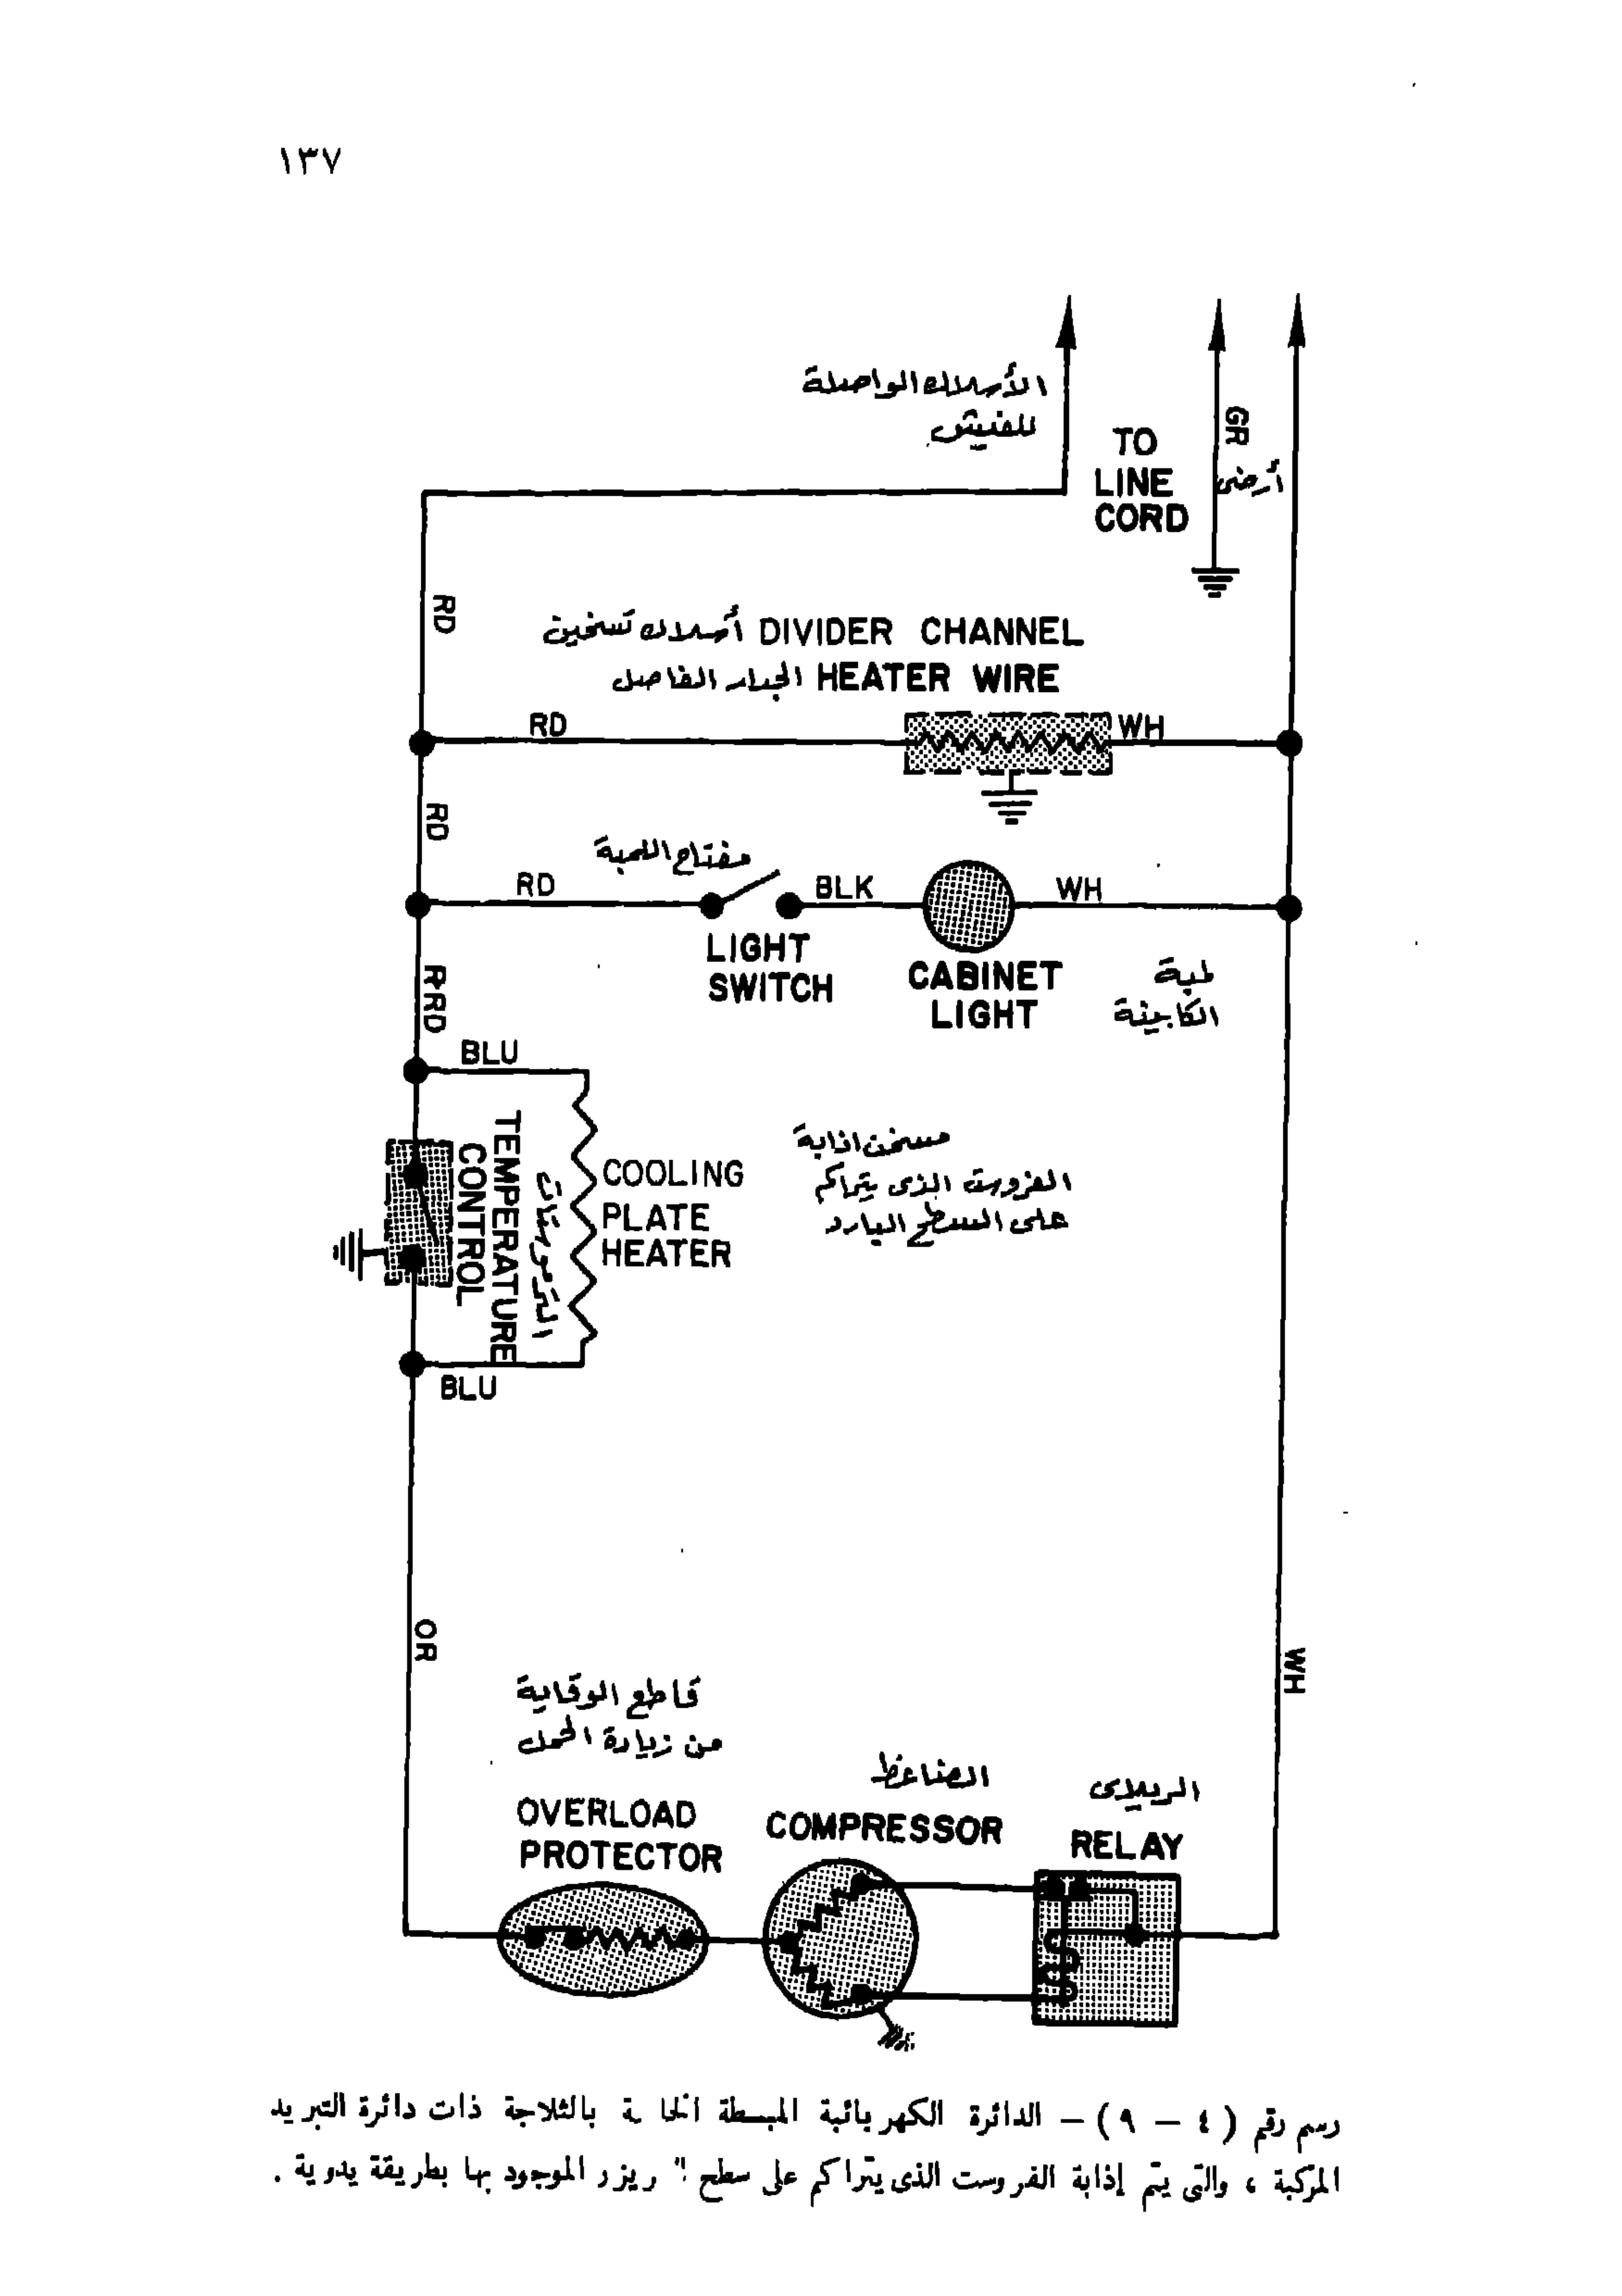 ١٣٧
الأسلاك الواصلة
للفيش
TO
LINE
CORD
GR
أرضى
RD
أسلاك تسخين DIVIDER CHANNEL
الجدار الفاصل HEATER WIRE
RD
WH
RD
مفتاح اللمبة
RD
BLK
WH
LIGHT
SWITCH
CABINET
LIGHT
لمبة
الكابينة
R-RD
BLU
TEMPERATURE
CONTROL
الترموستات
COOLING
PLATE
HEATER
مسخن اذابة
الفروست الذى يتراكم
على السطح البارد
BLU
OR
WH
قاطع الوقاية
من زيادة الحمل
OVERLOAD
PROTECTOR
الضاغط
COMPRESSOR
الريلاى
RELAY
رسم رقم ( ٤ – ٩ ) – الدائرة الكهربائية المبسطة بالثلاجة ذات دائرة التبريد
المركبة ، والتى يتم إذابة الفروست الذى يتراكم على سطح ريزر الموجود بها بطريقة يدوية .